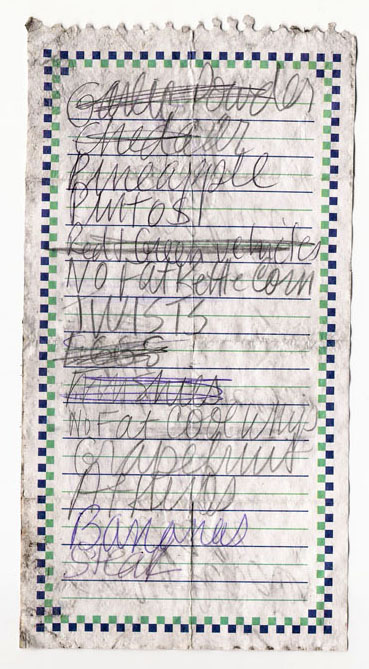 Garlic Powder
Cheddar
Pineapple
Pintos
Red + Green vehicles
No Fat Kettle Corn
TWISTS
EGGS
No Fat Cool Whip
Grapefruit
Bananas
Steak